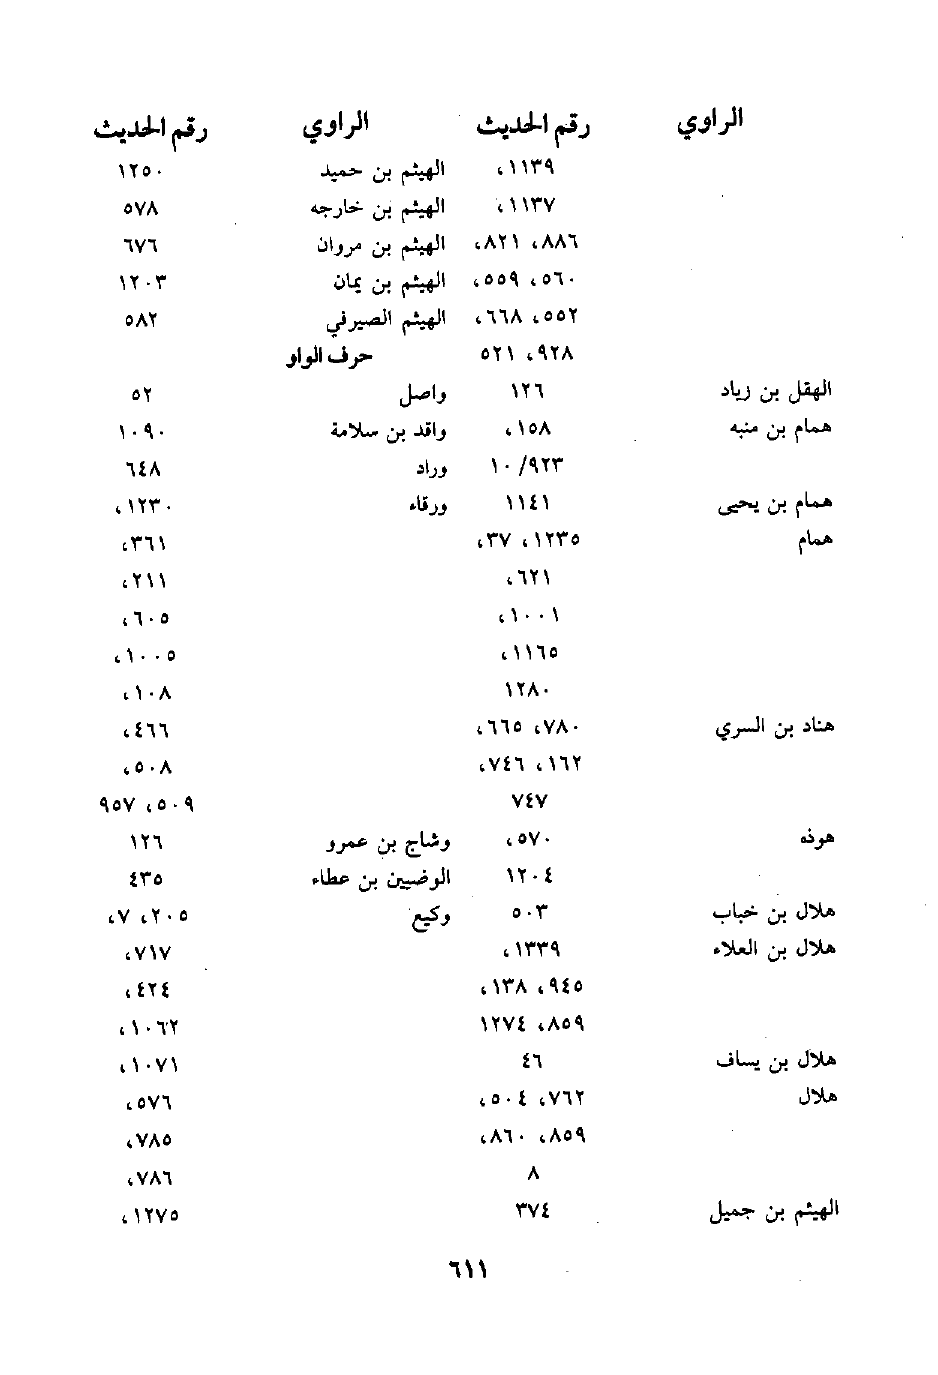 الراوي رقم الحديث
١١٣٩،
١١٣٧،
٨٨٦، ٨٢١،
٥٦٠، ٥٥٩،
٥٥٢، ٦٦٨،
٩٢٨، ٥٢١
الهقل بن زياد ١٢٦
همام بن منبه ١٥٨،
٩٢٣/١٠
همام بن يحيى ١١٤١
همام ١٢٣٥، ٣٧،
٦٢١،
١٠٠١،
١١٦٥،
١٢٨٠
هناد بن السري ٧٨٠، ٦٦٥،
١٦٢، ٧٤٦،
٧٤٧
هوذه ٥٧٠،
١٢٠٤
هلال بن خباب ٥٠٣
هلال بن العلاء ١٣٣٩،
٩٤٥، ١٣٨،
٨٥٩، ١٢٧٤
هلال بن يساف ٤٦
هلال ٧٦٢، ٥٠٤،
٨٥٩، ٨٦٠،
٨
الهيثم بن جميل ٣٧٤
الراوي رقم الحديث
الهيثم بن حميد ١٢٥٠
الهيثم بن خارجه ٥٧٨
الهيثم بن مروان ٦٧٦
الهيثم بن يمان ١٢٠٣
الهيثم الصيرفي ٥٨٢
حرف الواو
واصل ٥٢
واقد بن سلامة ١٠٩٠
وراد ٦٤٨
ورقاء ١٢٣٠،
٣٦١،
٢١١،
٦٠٥،
١٠٠٥،
١٠٨،
٤٦٦،
٥٠٨،
٥٠٩، ٩٥٧
وشاج بن عمرو ١٢٦
الوضيين بن عطاء ٤٣٥
وكيع ٢٠٥، ٧،
٧١٧،
٤٢٤،
١٠٦٢،
١٠٧١،
٥٧٦،
٧٨٥،
٧٨٦،
١٢٧٥،
٦١١